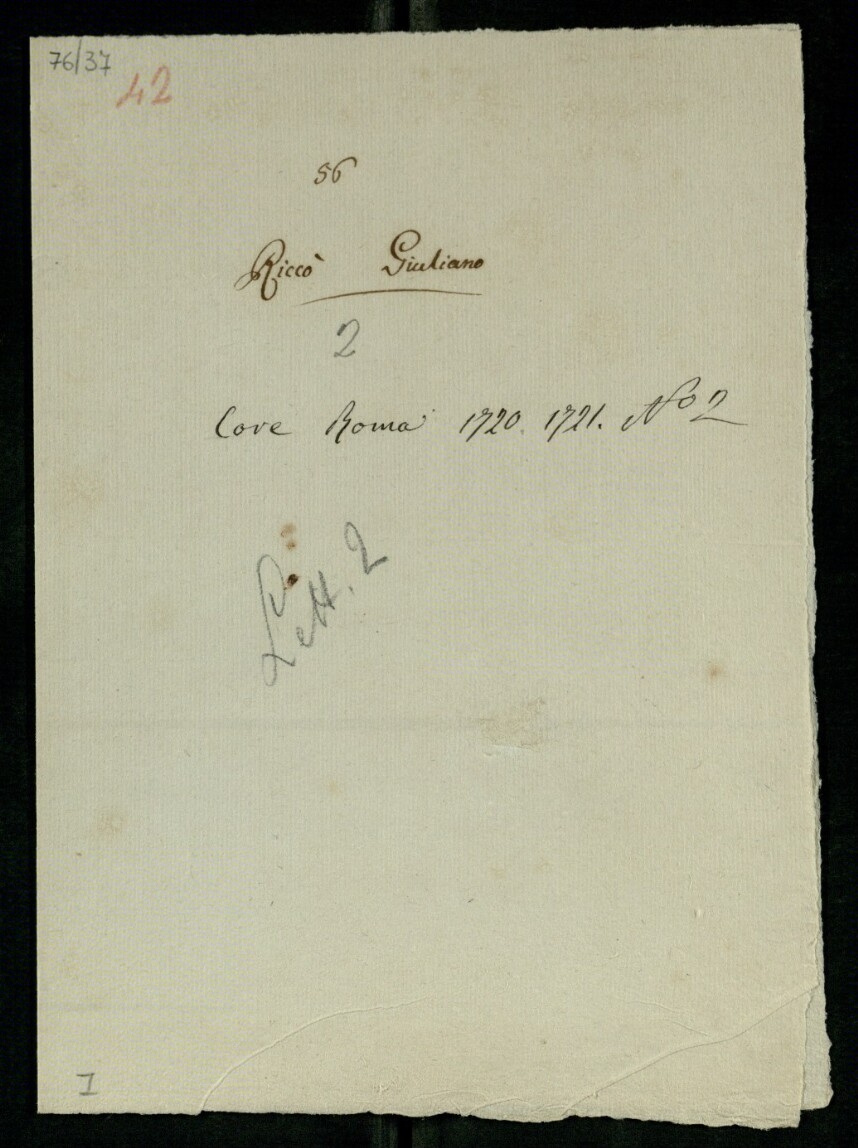 76/37
42
56
Riccò Giuliano
2
Cove Roma 1720. 1721. No 2
Lett. 2
I